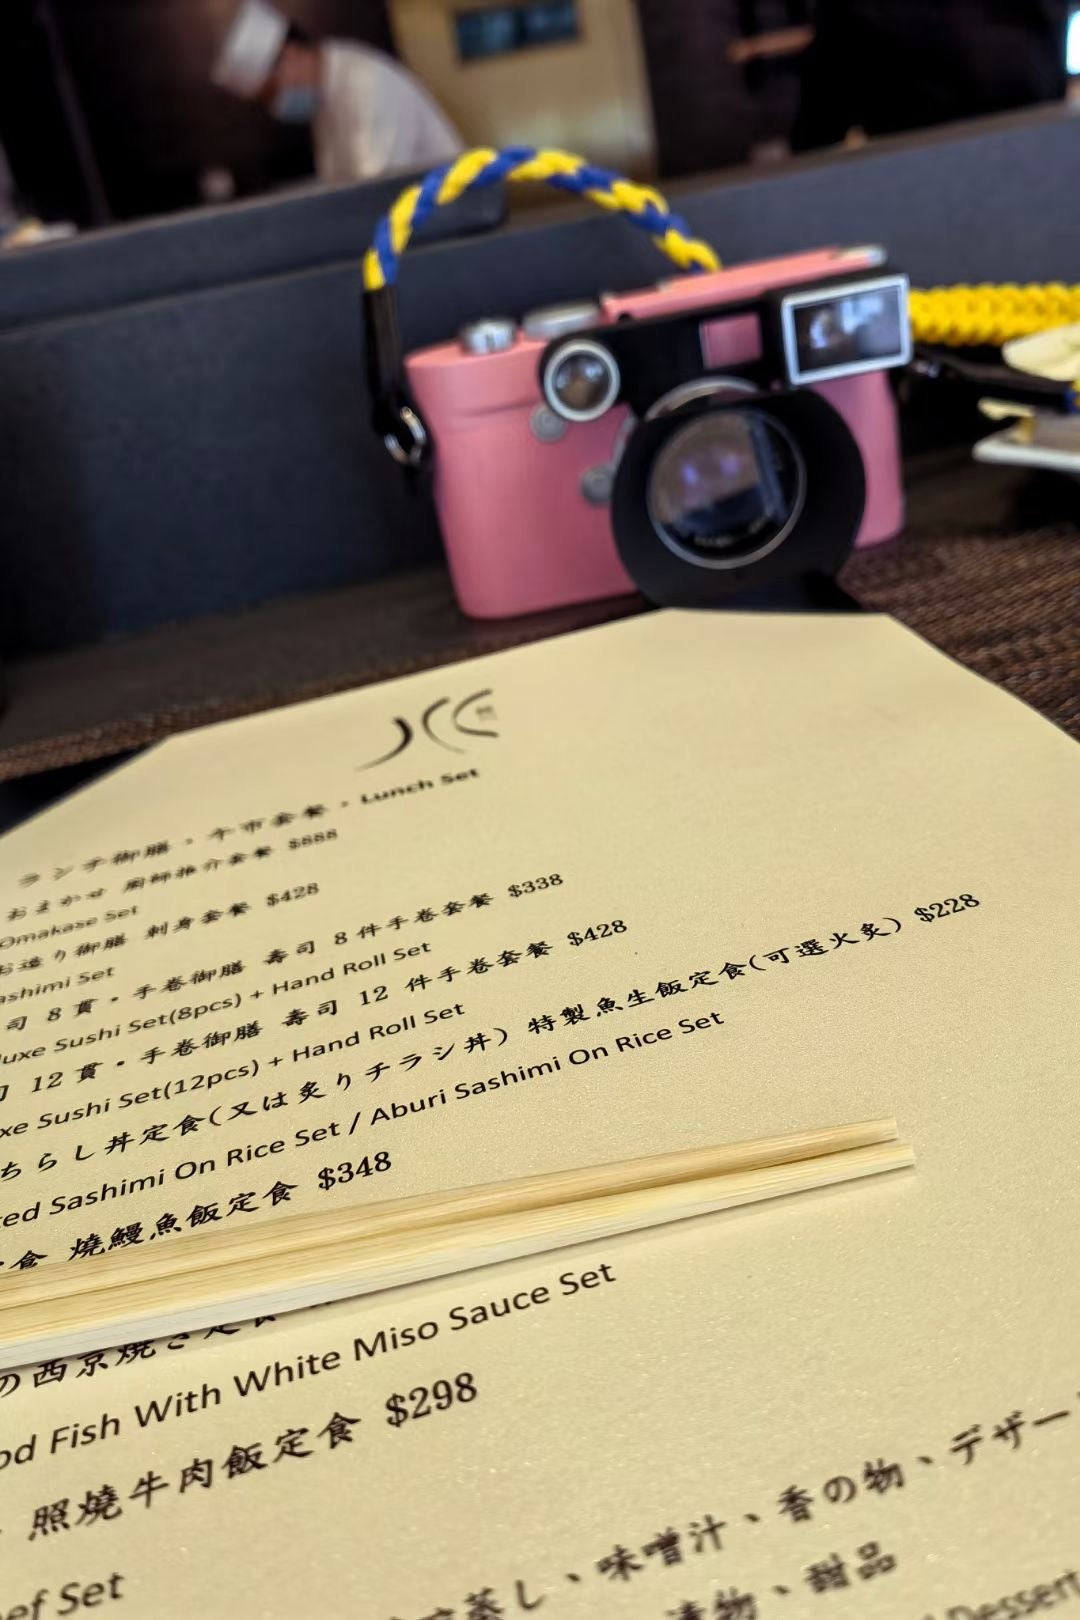 ランチ御膳・午市套餐・Lunch Set
おまかせ 廚師推介套餐 $888
Omakase Set
お造り御膳 刺身套餐 $428
ashimi Set
司 8 貫・手卷御膳 壽司 8 件手卷套餐 $338
luxe Sushi Set(8pcs) + Hand Roll Set
司 12 貫・手卷御膳 壽司 12 件手卷套餐 $428
xe Sushi Set(12pcs) + Hand Roll Set
ちらし丼定食(又は炙りチラシ丼) 特製魚生飯定食(可選火炙) $228
ted Sashimi On Rice Set / Aburi Sashimi On Rice Set
定食 燒鰻魚飯定食 $348
の西京焼き定食
od Fish With White Miso Sauce Set
照燒牛肉飯定食 $298
ef Set
蒸し、味噌汁、香の物、デザー
漬物、甜品
Dessert